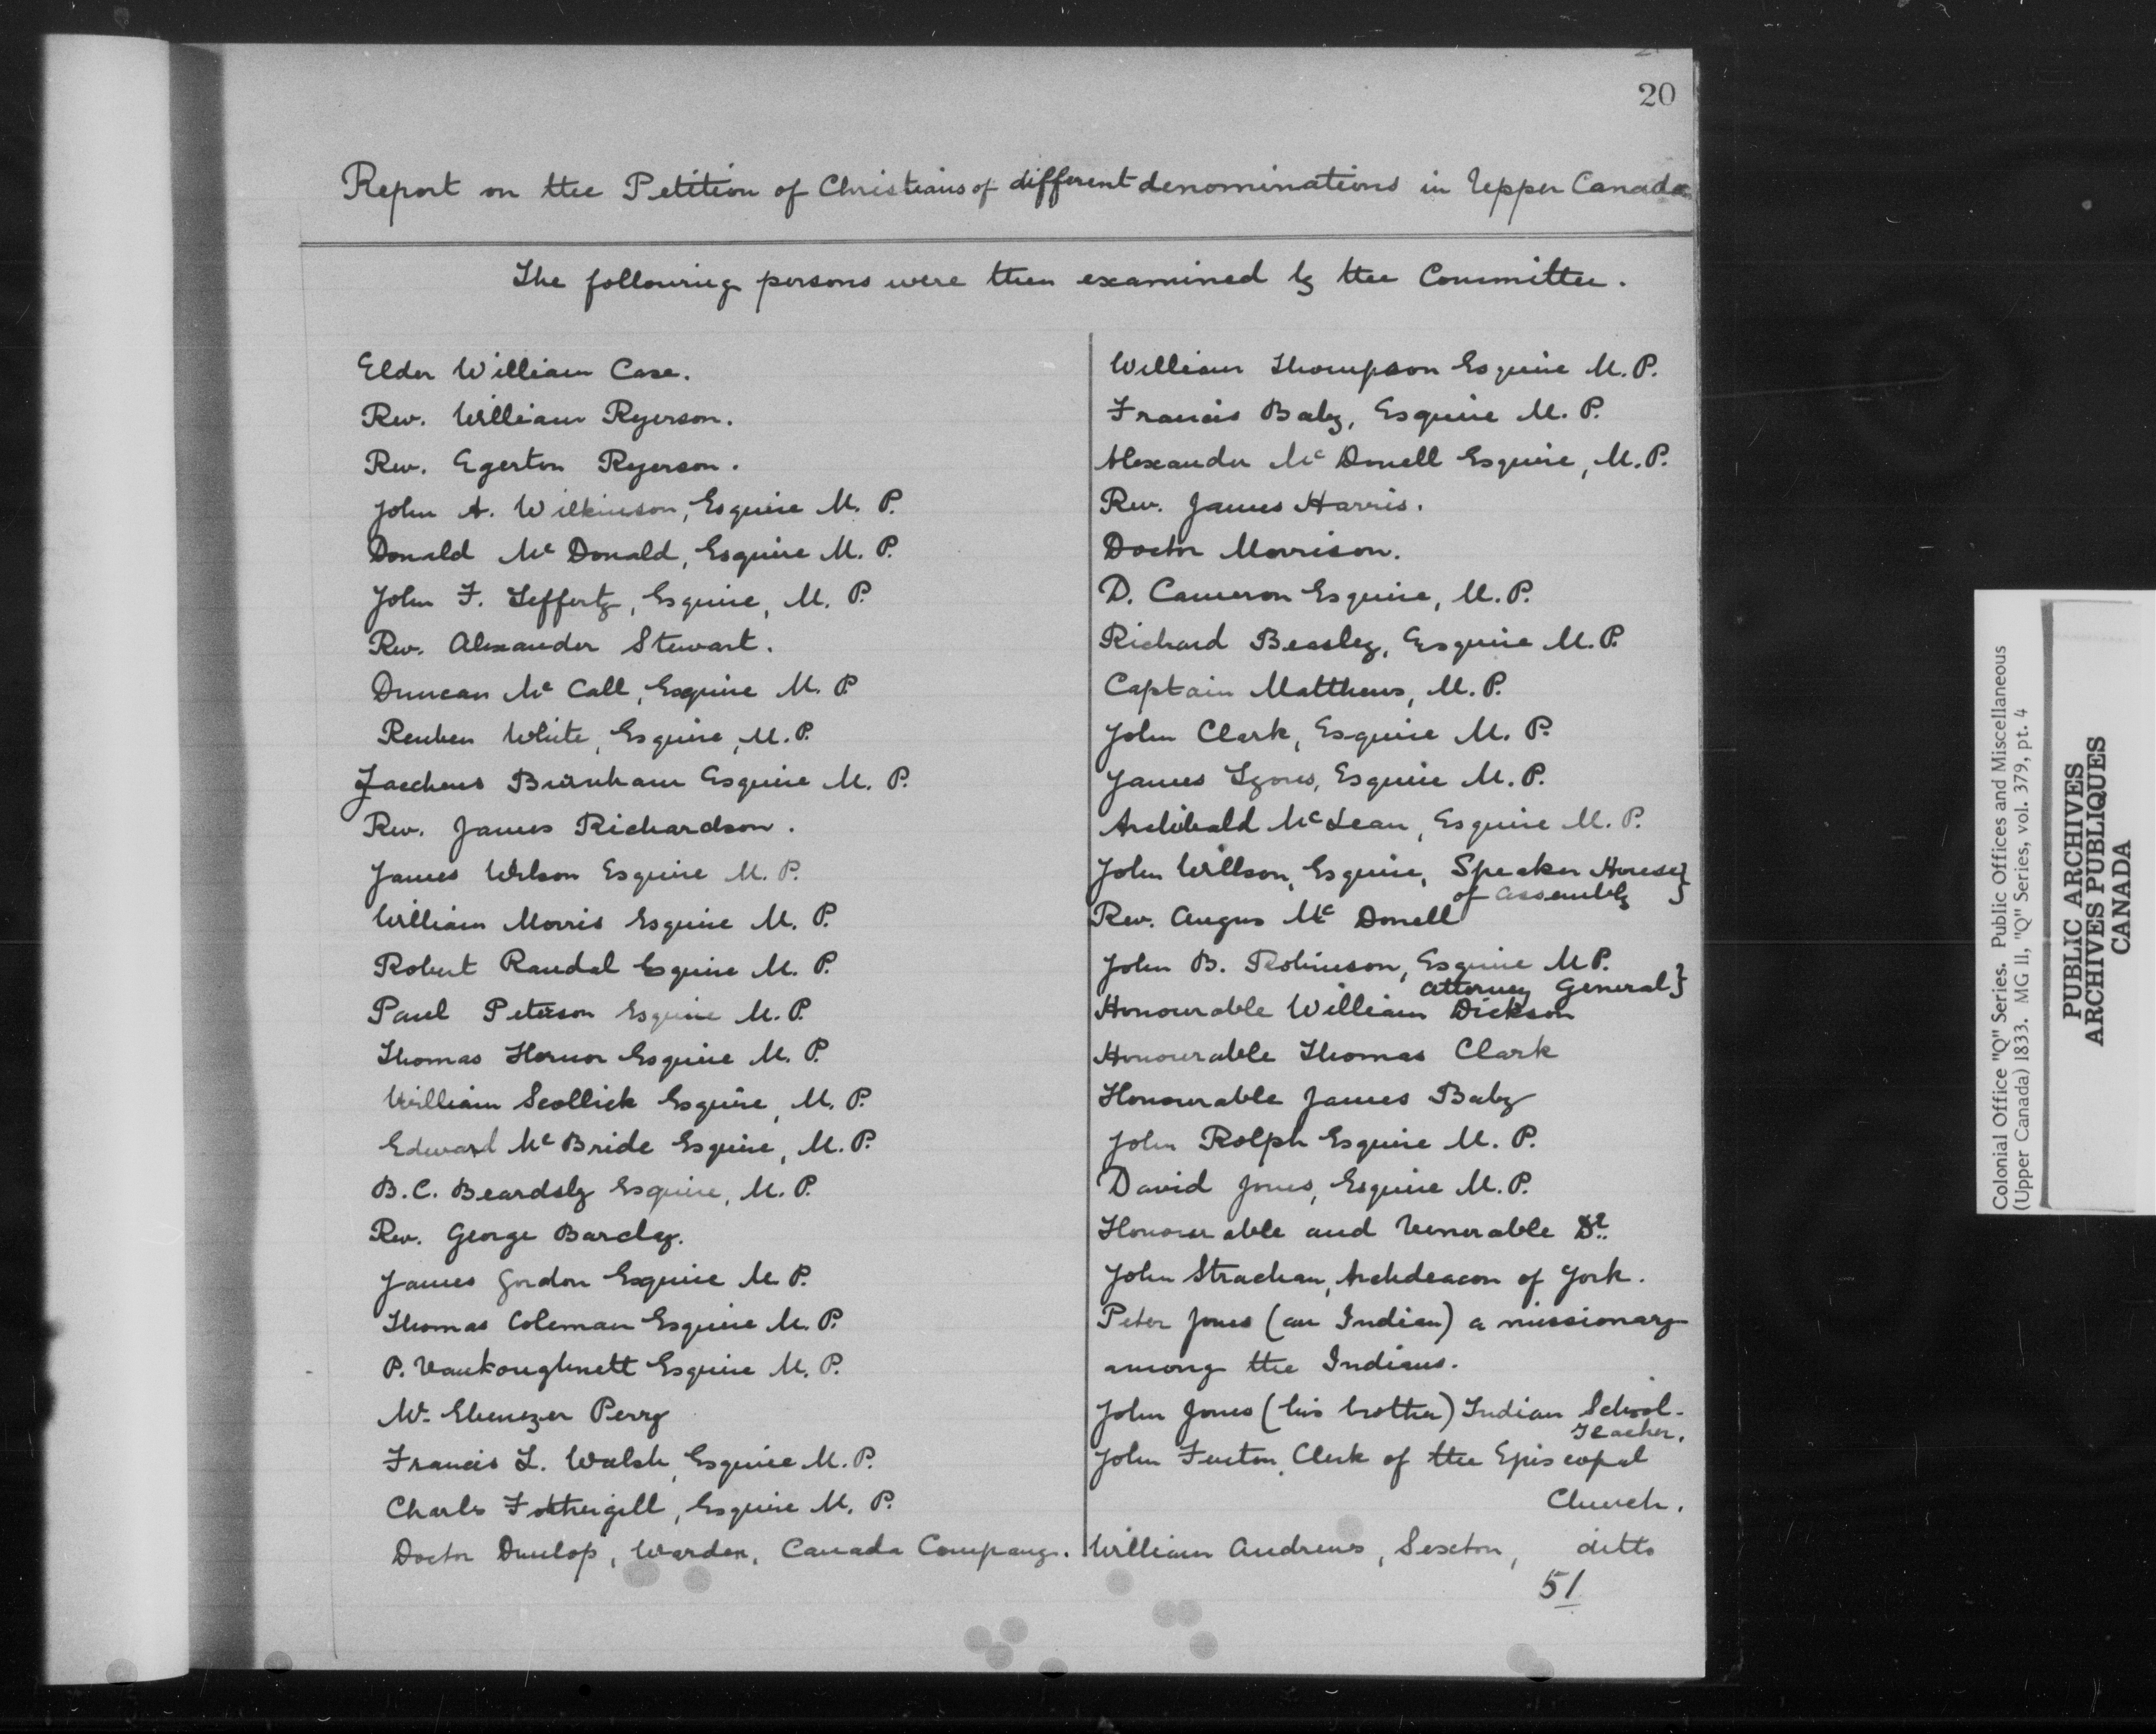 20
Report on the Petition of Christians of different denominations in Upper Canada
The following persons were then examined by the Committee.
Elder William Case.
Rev. William Ryerson.
Rev. Egerton Ryerson.
John A. Wilkinson, Esquire M. P.
Donald Mc Donald, Esquire M. P.
John F. Leffertz, Esquire, M. P.
Rev. Alexander Stewart.
Duncan Mc Call, Esquire M. P.
Reuben White, Esquire, M. P.
Zaccheus Burnham Esquire M. P.
Rev. James Richardson.
James Wilson Esquire M. P.
William Morris Esquire M. P.
Robert Randal Esquire M. P.
Paul Peterson Esquire M. P.
Thomas Hornor Esquire M. P.
William Scollick Esquire, M. P.
Edward Mc Bride Esquire, M. P.
B. C. Beardsly Esquire, M. P.
Rev. George Barclay.
James Gordon Esquire M. P.
Thomas Coleman Esquire M. P.
P. Vankoughnett Esquire M. P.
Mr. Ebenezer Perry
Francis L. Walsh, Esquire M. P.
Charles Fothergill, Esquire M. P.
Doctor Dunlop, Warden, Canada Company.
William Thompson Esquire M. P.
Francis Baby, Esquire M. P.
Alexander Mc Donell Esquire, M. P.
Rev. James Harris.
Doctor Morrison.
D. Cameron Esquire, M. P.
Richard Beasley, Esquire M. P.
Captain Matthews, M. P.
John Clark, Esquire M. P.
James Lyons, Esquire M. P.
Archibald McLean, Esquire M. P.
John Willson, Esquire, Speaker House}
of Assembly
Rev. Angus Mc Donell
John B. Robinson, Esquire M P.
Attorney General}
Honourable William Dickson
Honourable Thomas Clark
Honourable James Baby
John Rolph Esquire M. P.
David Jones, Esquire M. P.
Honourable and Venerable Dr.
John Strachan, Archdeacon of York.
Peter Jones (an Indian) a missionary
among the Indians.
John Jones (his brother) Indian School-
Teacher.
John Fenton, Clerk of the Episcopal
Church.
William Andrews, Sexton, ditto
51
Colonial Office "Q" Series. Public Offices and Miscellaneous
(Upper Canada) 1833. MG 11, "Q" Series, vol. 379, pt. 4
PUBLIC ARCHIVES
ARCHIVES PUBLIQUES
CANADA